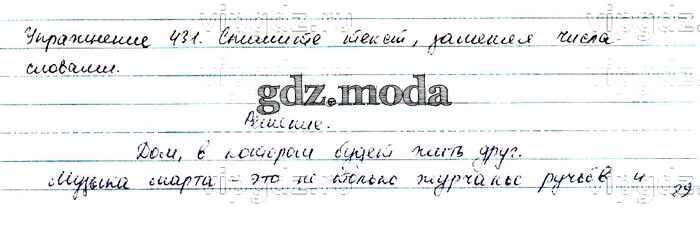 Упражнение 431. Спишите текст, заменяя числа
словами.
gdz.moda
Решение.
Дом, в котором будет жить друг.
Музыка марта - это не только журчанье ручьёв и
29